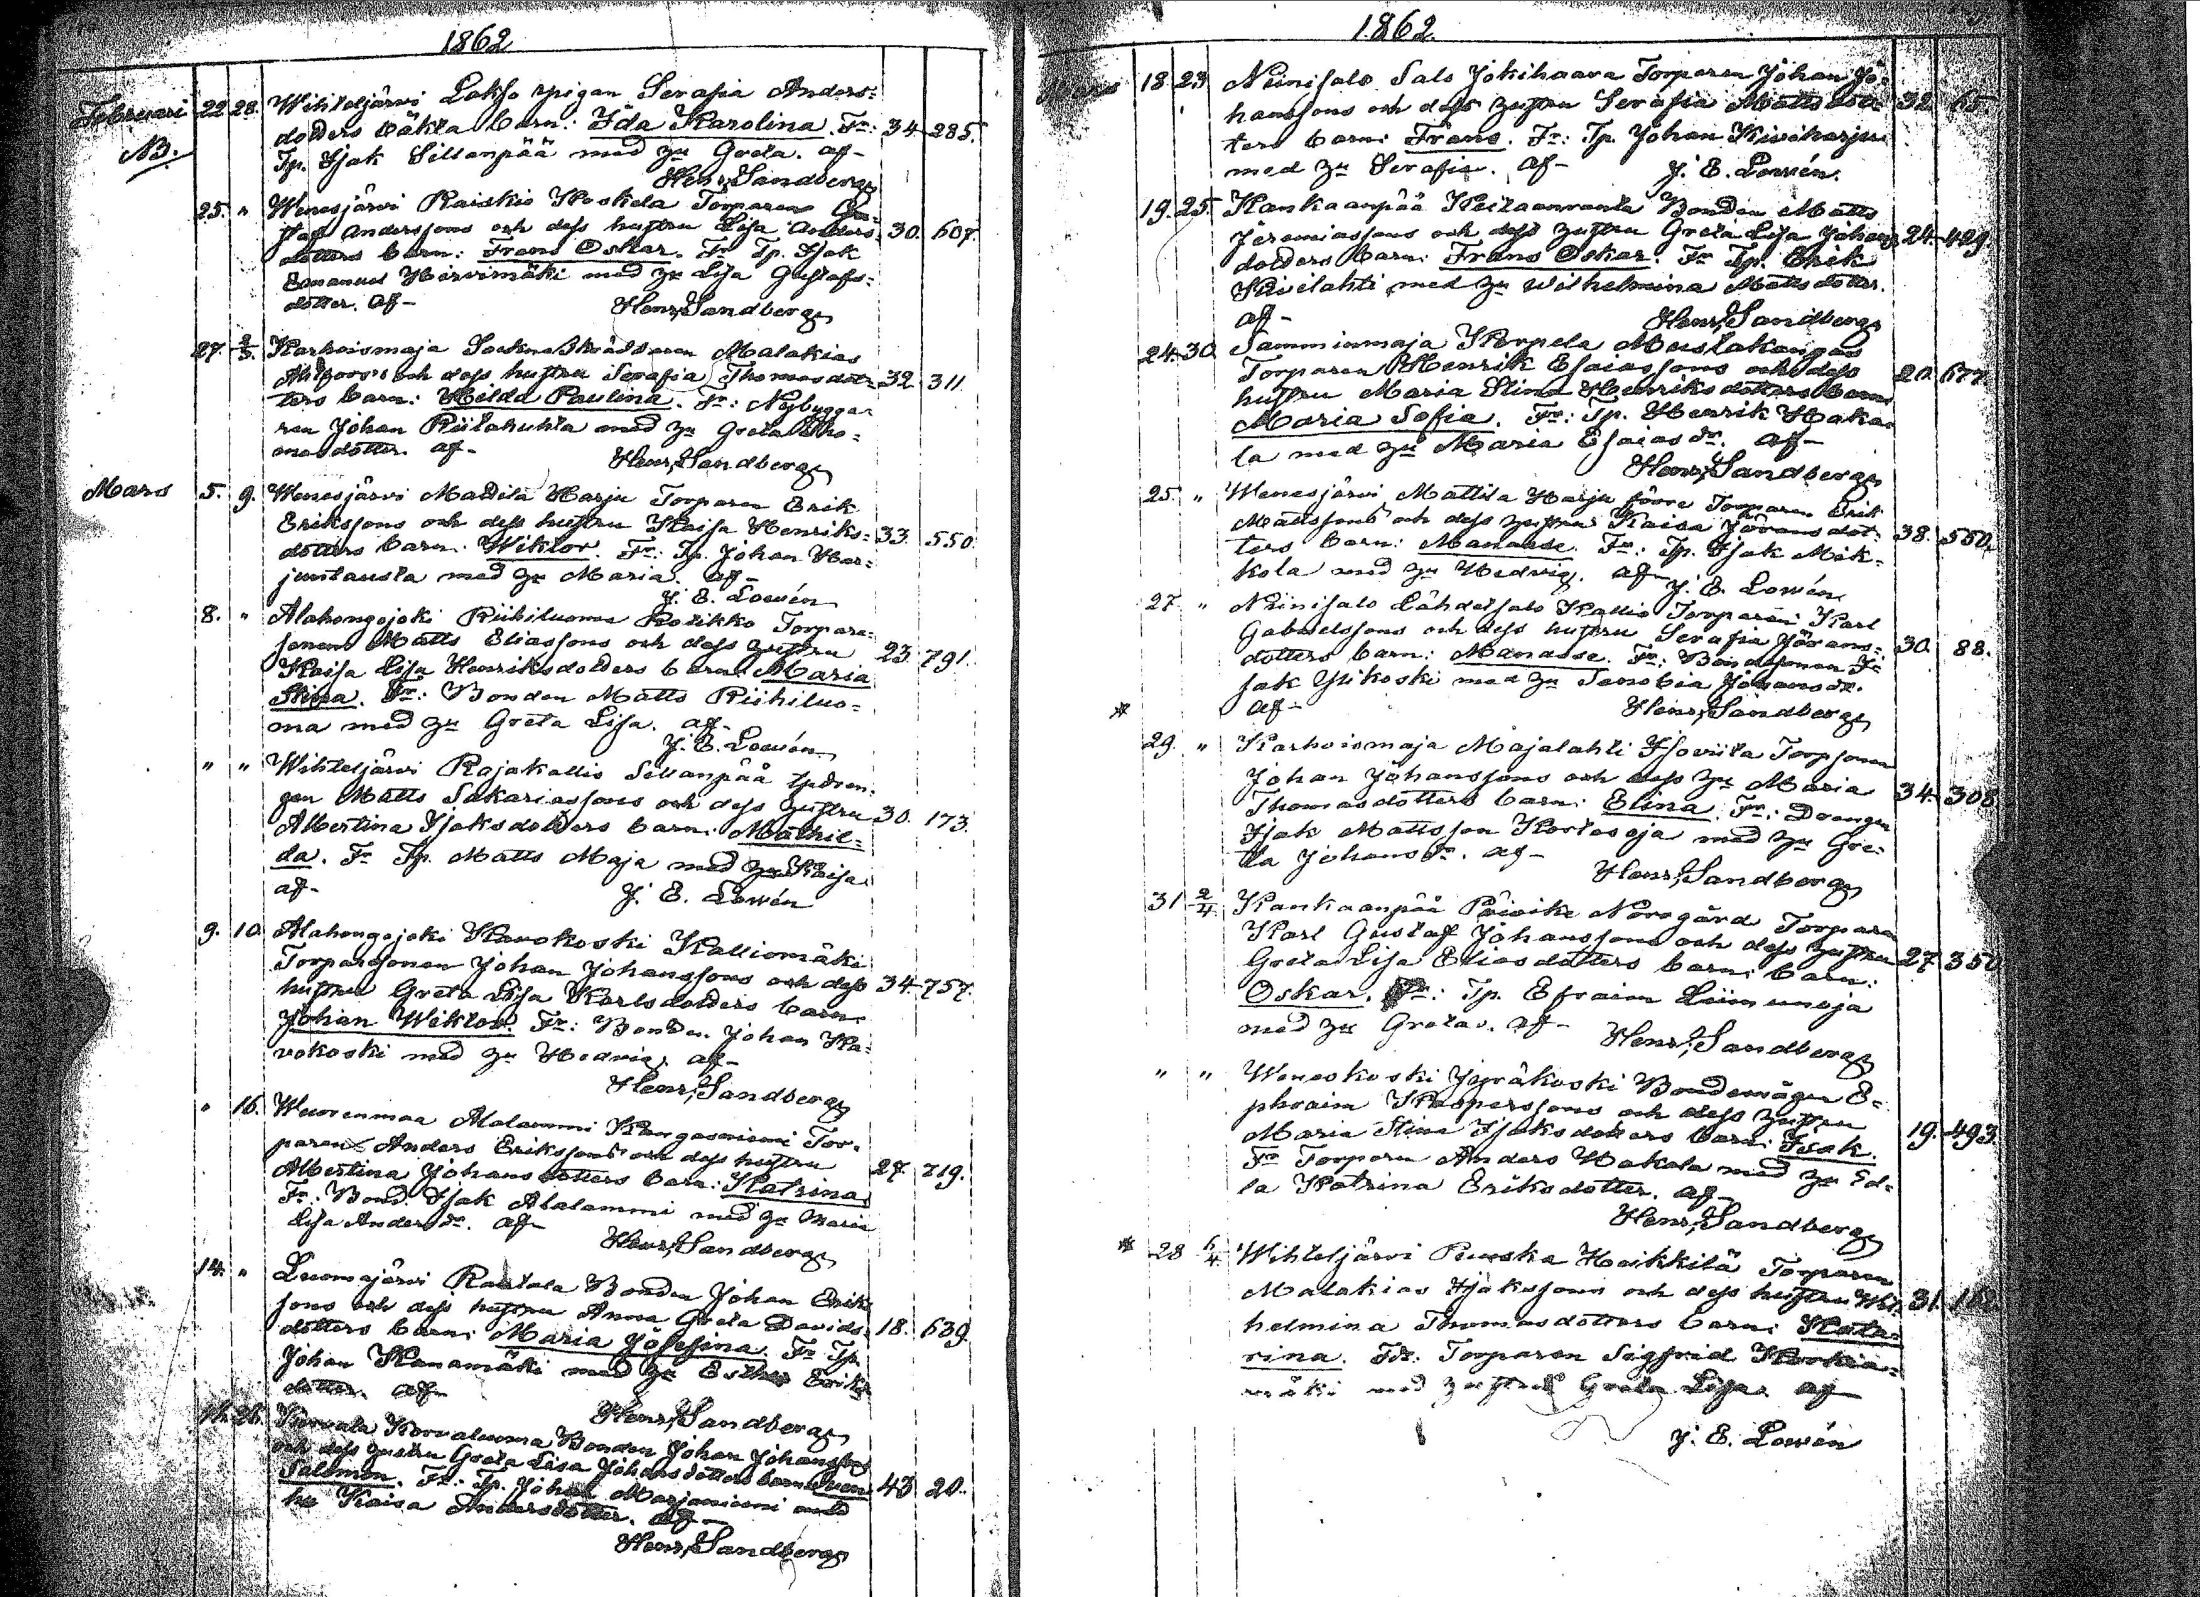 1862
Februari 22. 28. Wihteljärvi Lakso pigan Serafia Anders-
NB. dotters oäkta barn: Ida Karolina. Fr: 34. 285.
Tp. Isak Sillanpää med hu Greta. af-
Henr. Sandberg
25. " Wenesjärvi Raiskio Koskela Torparen Gu-
staf Anderssons och dess hustru Lisa Anders- 30. 607.
dotters barn: Frans Oskar. Fr Tp. Isak
Emanuel Hirvimäki med hu Lisa Gustafs-
dotter. af-
Henr. Sandberg
27. 2/3. Karhoismaja Sockneskräddaren Malakias
Ahlfors's och dess hustru Serafia Thomasdot- 32. 311.
ters barn: Hilda Paulina. Fr: Nybygga-
ren Johan Riitaruhta med hu Greta Tho-
masdotter. af-
Henr. Sandberg
Mars 5. 9. Wenesjärvi Mattila Harju Torparen Erik
Erikssons och dess hustru Kaisa Henriks- 33. 550.
dotters barn: Wiktor. Fr: Tp. Johan Har-
juntausta med hu Maria. af-
J. E. Lowén
8. " Alahongojoki Riihiluoma Kotikko Torpare-
sonen Matts Eliassons och dess hustru 23. 791.
Kaisa Lisa Henriksdotters barn: Maria
Stina. Fr: Bonden Matts Riihiluo-
ma med hu Greta Lisa. af-
J. E. Lowén
" " Wihteljärvi Rajakallio Sillanpää tpdren-
gen Matts Sakariassons och dess hustru 30. 173.
Albertina Isaksdotters barn: Mathil-
da. Fr Tp. Matts Maja med hu Kaisa
af-
J. E. Lowén
9. 10. Alahongojoki Kavokoski Kalliomäki
Torparesonen Johan Johanssons och dess 34. 757.
hustru Greta Lisa Karlsdotters barn
Johan Wiktor. Fr: Bonden Johan Ka-
vokoski med hu Hedvig. af-
Henr. Sandberg
" 16. Wuorenmaa Alalammi Kangasniemi Tor-
paren Anders Erikssons och dess hustru 27. 719.
Albertina Johansdotters barn: Katrina
Fr: Bond. Isak Alalammi med hu Maria
Lisa Andersdr. af-
Henr. Sandberg
14. " Luomajärvi Rautala Bonden Johan Erik-
sons och dess hustru Anna Greta Davids- 18. 639.
dotters barn: Maria Josefina. Fr Tp.
Johan Kanamäki med hu Esther Eriks
dotter. af-
Henr. Sandberg
Korvaluoma Bonden Johan Johanssons
och dess hustru Greta Lisa Johansdotters barn
Salomon. Fr: Tp. Johan Marjaniemi med 43. 20.
hu Kaisa Andersdotter. af-
Henr. Sandberg
1862.
Mars 18. 23. Niinisalo Salo Jokihaara Torparen Johan Jo-
hanssons och dess hustru Serafia Mattsdot- 32. 65.
ters barn: Frans. Fr: Tp. Johan Kiviharju
med hu Serafia. af-
J. E. Lowén.
19. 25. Kankaanpää Keitaanranta Bonden Matts
Jeremiassons och dess hustru Greta Lisa Johans 24. 429.
dotters barn: Frans Oskar. Fr Tp. Erik
Kivilahti med hu Wilhelmina Mattsdotter.
af-
Henr. Sandberg
24. 30. Samminmaja Kerpela Mustakangas
Torparen Henrik Esaiassons och dess 20. 677.
hustru Maria Stina Henriksdotters barn
Maria Sofia. Fr: Tp. Henrik Haka-
la med hu Maria Esaiasdr. af-
Henr. Sandberg
25. " Wenesjärvi Mattila Harju förre Torparen Erik
Mattssons och dess hustru Kaisa Göransdot- 38. 550.
ters barn: Manasse. Fr: Tp. Isak Mik-
kola med hu Hedvig. af-
J. E. Lowén
27. " Niinisalo Lähdesalo Kallio Torparen Karl
Gabrielssons och dess hustru Serafia Görans- 30. 88.
dotters barn: Manasse. Fr: Bondesonen I-
sak Ylikoski med hu Senobia Johansdr.
af-
Henr. Sandberg
29. " Karhoismaja Majalahti Isoviita Torpsonen
Johan Johanssons och dess hu Maria 34. 308.
Thomasdotters barn: Elina. Fr: Drengen
Isak Mattsson Kortesoja med hu Gre-
ta Johansdr. af-
Henr. Sandberg
31. 2/4. Kankaanpää Päivike Norrgård Torparen
Karl Gustaf Johanssons och dess hustru
Greta Lisa Eliasdotters barn: barn: 27. 350
Oskar. Fr: Tp. Efraim Liimunoja
med hu Greta. af-
Henr. Sandberg
" " Weneskoski Jyräkoski Bondemågen E-
phraim Kasperssons och dess hustru
Maria Stina Isaksdotters barn: Isak. 19. 493.
Fr Torparen Anders Hakala med hu Ed-
la Katrina Eriksdotter. af-
Henr. Sandberg
* 28. 6/4. Wihteljärvi Pouska Heikkilä Torparen
Malakias Isakssons och dess hustru Wil- 31.
helmina Thomasdotters barn: Kata-
rina. Fdr: Torparen Sigfrid
mäki med hustru Greta Lisa. af
J. E. Lowén